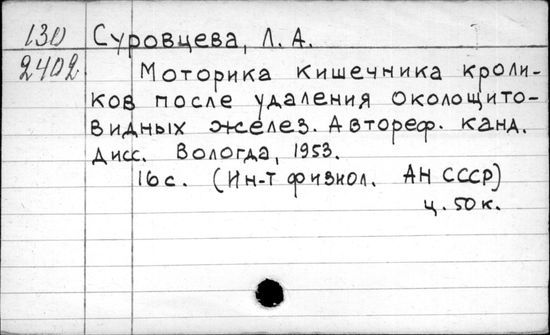 130 Суровцева, Л. А.
2402 Моторика кишечника кроли-
ков после удаления околощито-
видных желез. Автореф. канд.
дисс. Вологда, 1953.
16 с. (Ин-т физиол. АН СССР)
ц. 50 к.